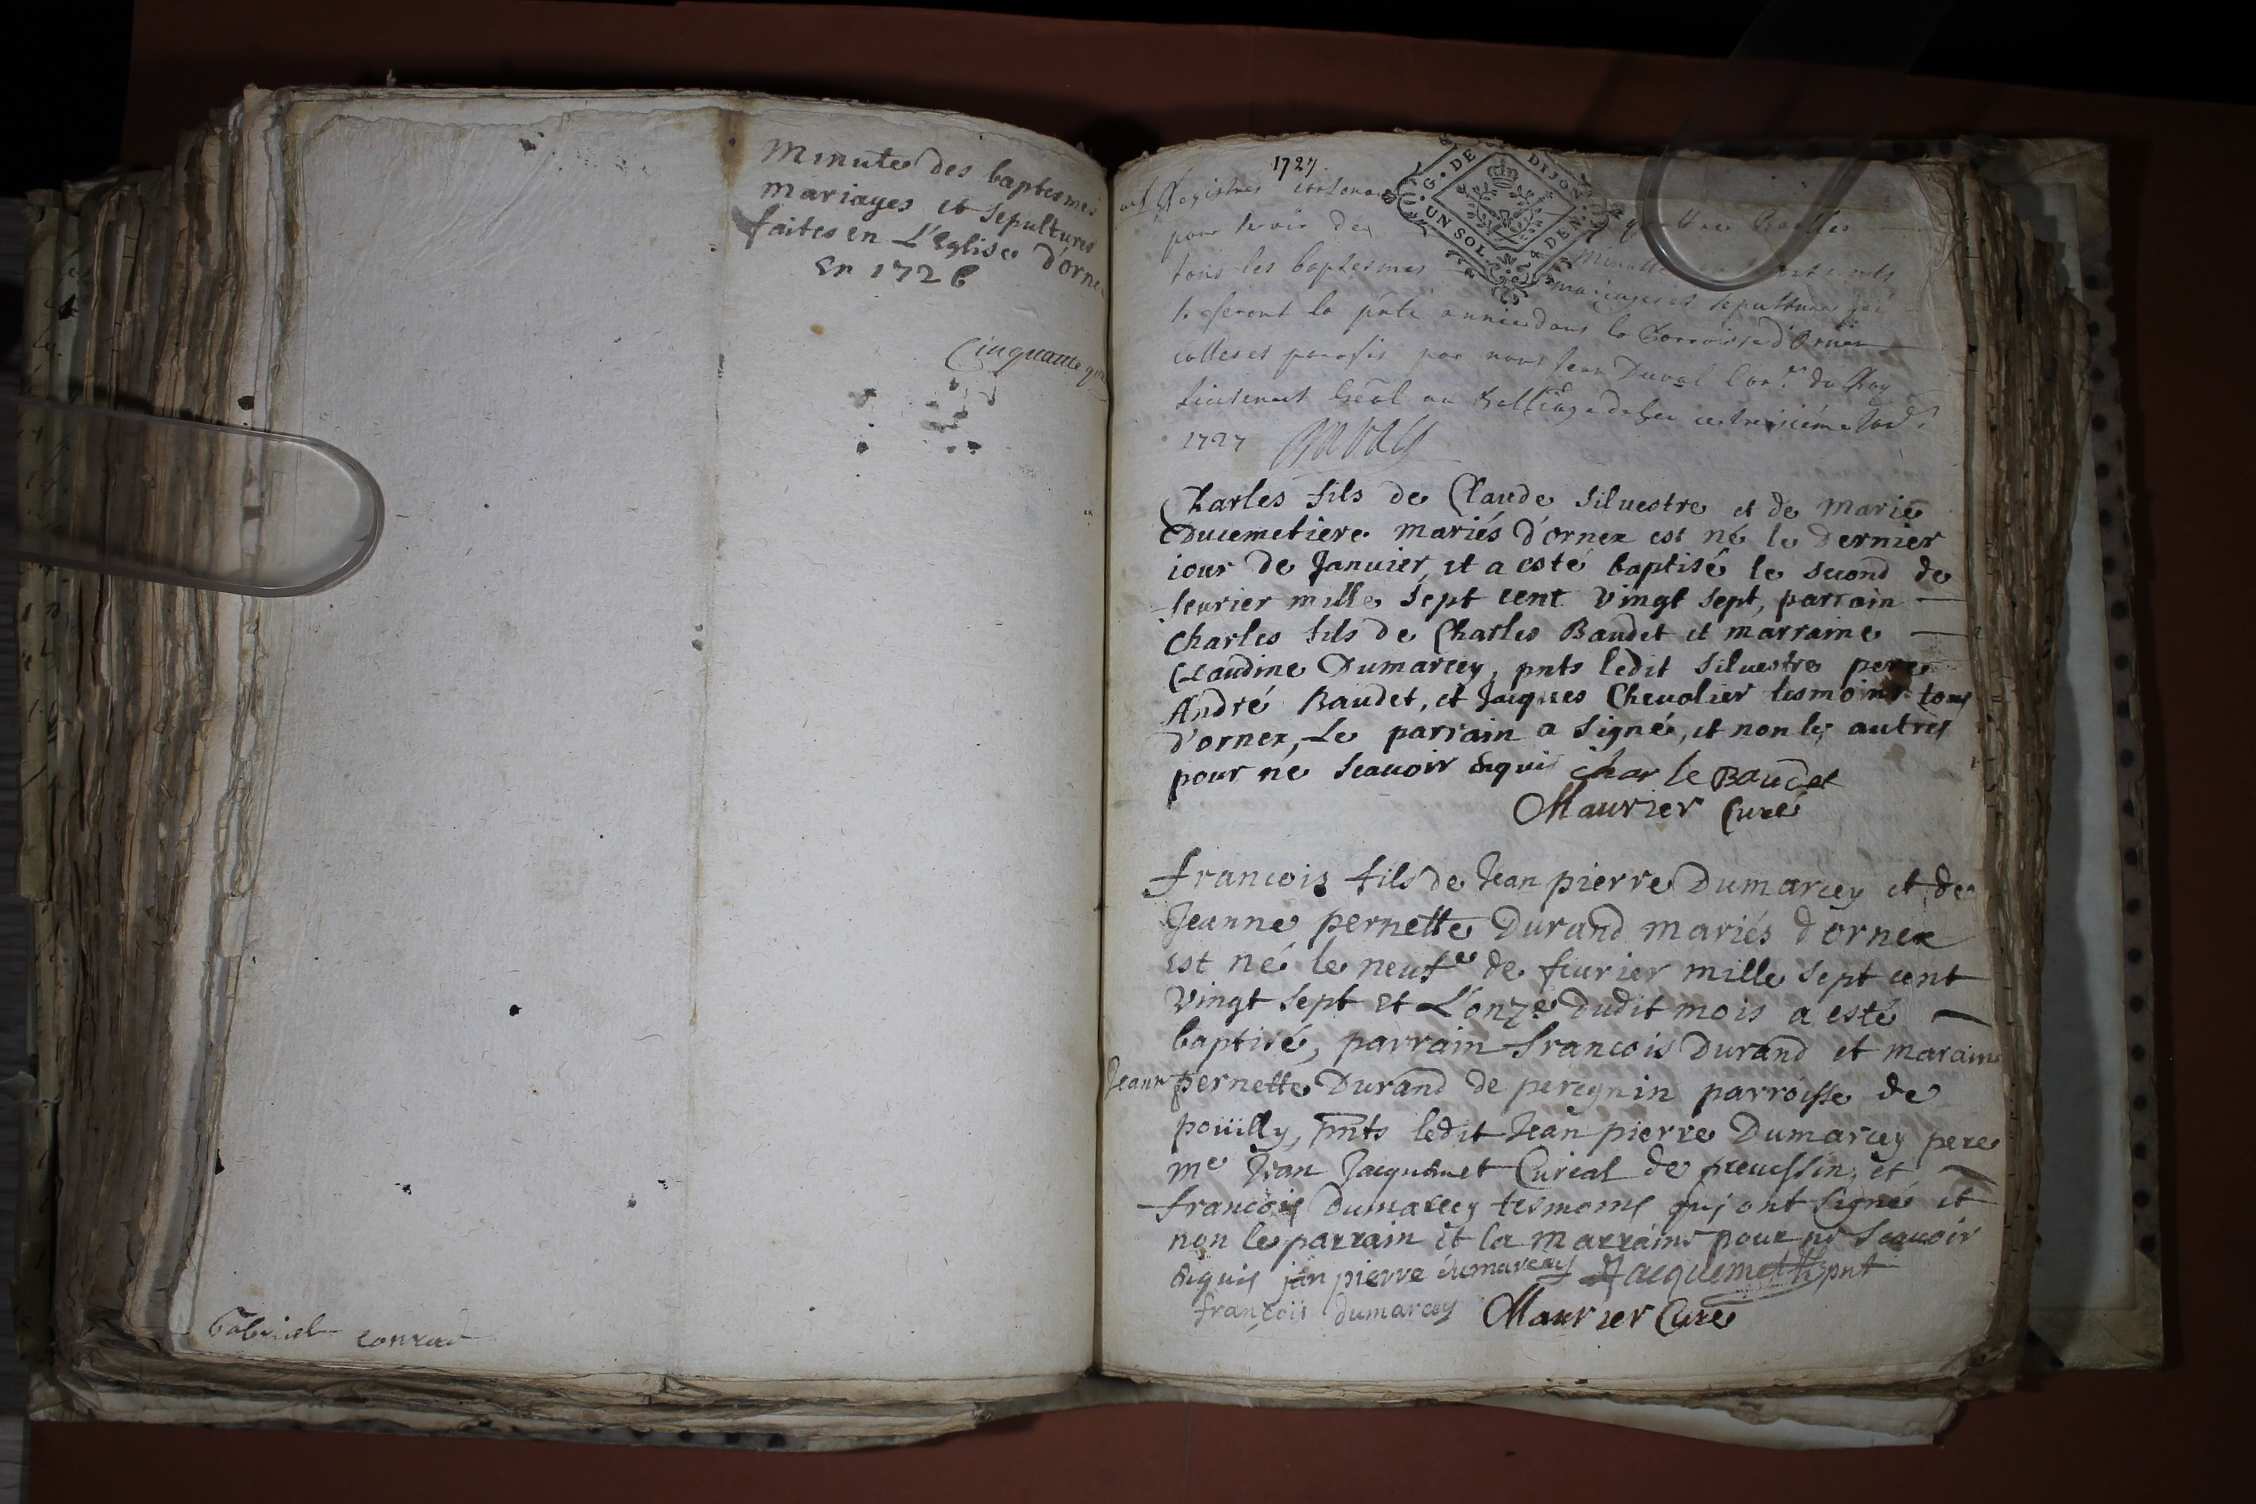 Minute des baptesmes
mariages et sepultures
faites en L'Eglise d'ornex
en 1726
Cinquante
Gabriel conrad
1727
G. DE DIJON
UN SOL. & DEN.
Registre
pour servir de
tous les baptesmes mariages et sepultures qui
se feront la pnte année dans la Parroisse d'Ornex
cottes et parafés par nous Jean Duval Con.er du Roy
Lieutenant
1727 Duval
Charles fils de Claude silvestre et de Marie
Ducemetiere mariés d'ornex est né le dernier
iour de Januier, et a esté baptisé le second de
feurier mille sept cent vingt sept, parrain
Charles fils de Charles Baudet et marraine
Claudine Dumarcey, pnts ledit silvestre pere
André Baudet, et Jacques Chevalier tesmoins tous
d'ornex, Le parrain a signé, et non les autres
pour ne scauoir enquis charle Baudet
Maurier Curé
francois fils de Jean pierre Dumarcey et de
Jeanne pernette Durand mariés d'ornex
est né le neufe de feurier mille sept cent
vingt sept et L'onze dudit mois a esté
baptisé, parrain francois Durand et maraine
Jeanne pernette Durand de peregnin parroisse de
poüilly, pnts ledit Jean pierre Dumarcey pere
me Jean Jacquemet Curial de preuessin, et
francois Dumarcey tesmoins qui ont signé et
non le parrain et la marraine pour ne scauoir
enquis jan pierre dumarcey Jacquemet pnt
françois dumarcey Maurier Curé